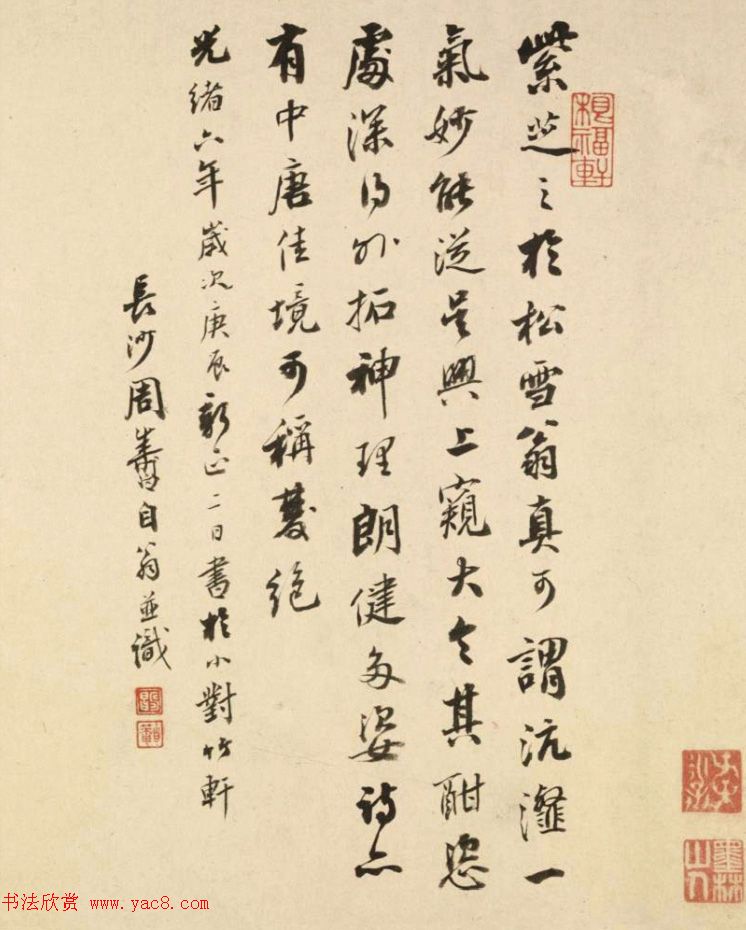 紫芝之於松雪翁真可謂沆瀣一
氣妙能從吳興上窺大令其酣恣
處深得外拓神理朗健多姿詩亦
有中唐佳境可稱雙絶
光緒六年歲次庚辰新正二日書於小對竹軒
長沙周壽昌自翁並識
墨林山人
书法欣赏 www.yac8.com